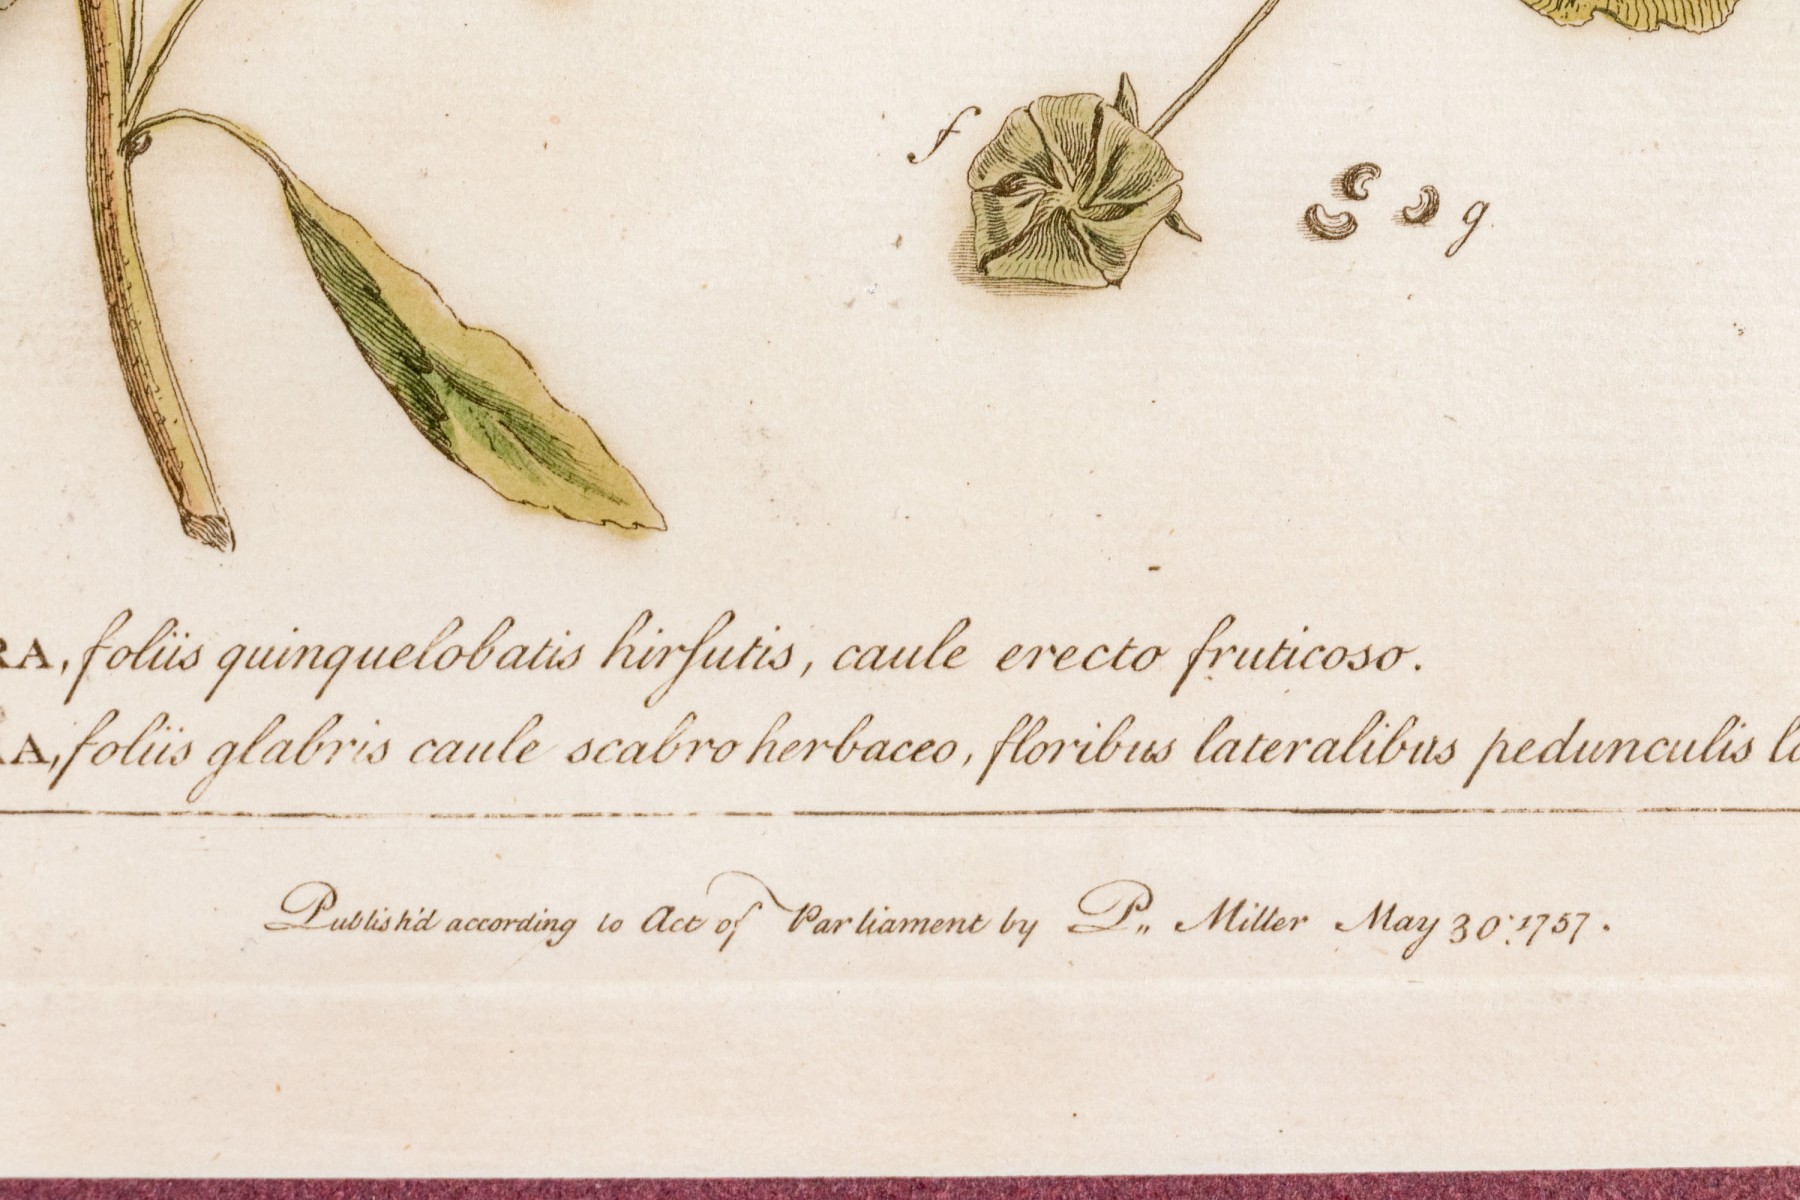 f
g.
RA, foliis quinquelobatis hirſutis, caule erecto fruticoso.
RA, foliis glabris caule scabro herbaceo, floribus lateralibus pedunculis lo
Publish'd according to Act of Parliament by P,, Miller May 30: 1757.